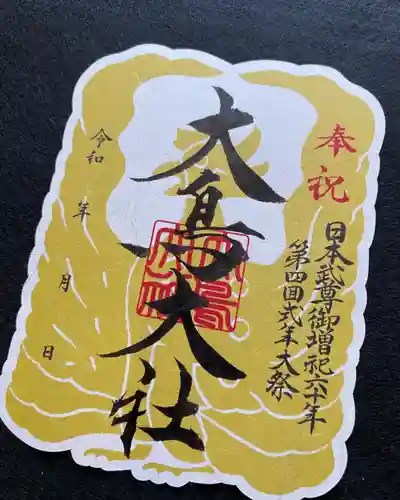 奉祝
日本武尊御増祀六十年
第四回式年大祭
大鳥大社
令和
年
月
日